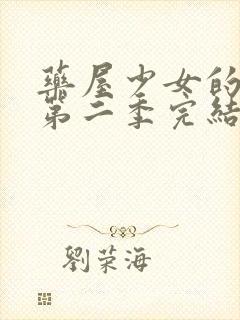 藥屋少女的
第二季完結
劉荣海